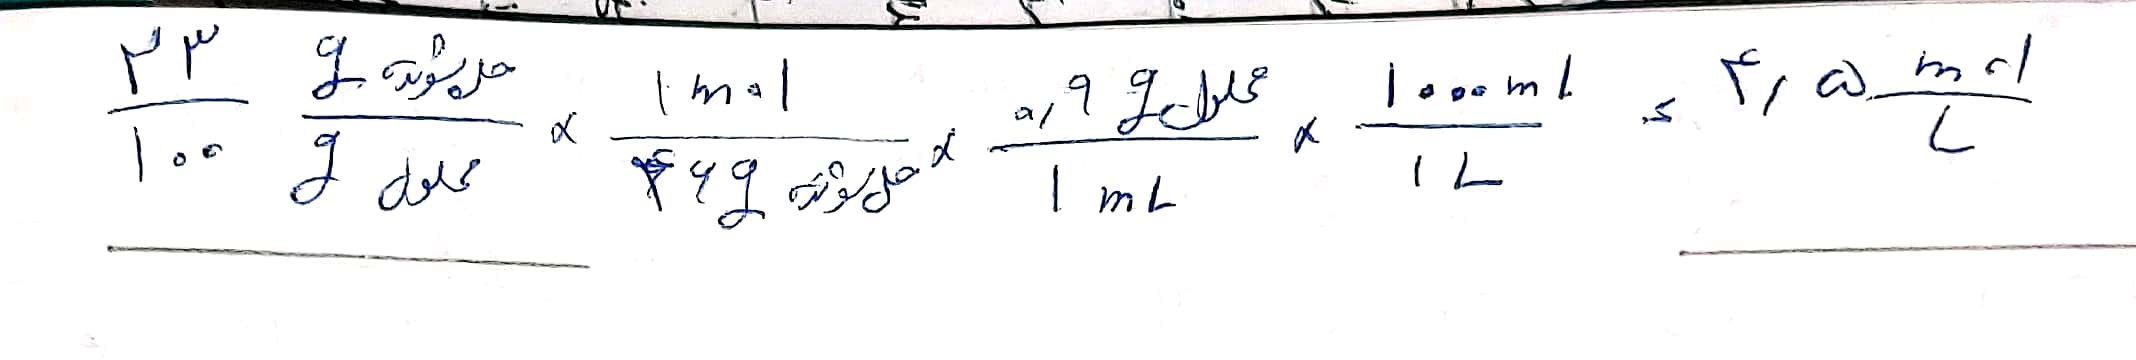 ۲۳/۱۰۰ g حل‌شونده/g محلول × 1 mol/۴۶ g حل‌شونده × ۰٫۹ g محلول/1 mL × 1000 mL/1 L = ۴٫۵ mol/L